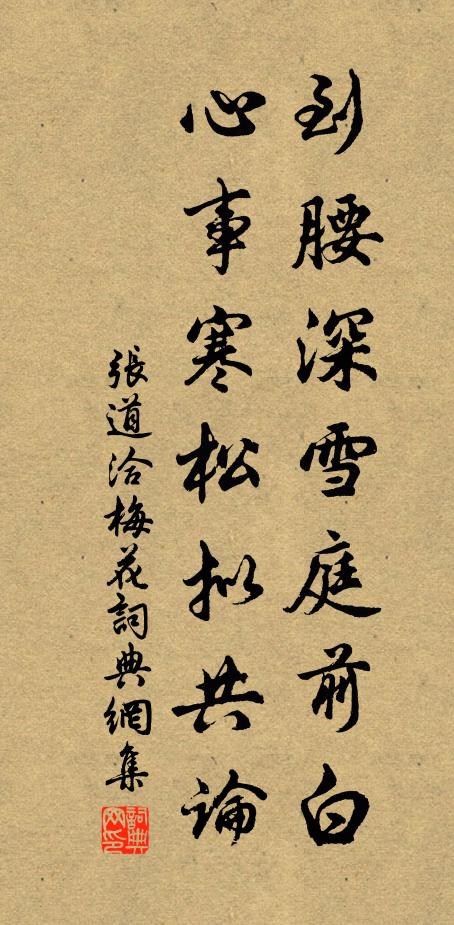 到腰深雪庭前白
心事寒松拟共論
張道洽梅花詞典網集
詞典网印